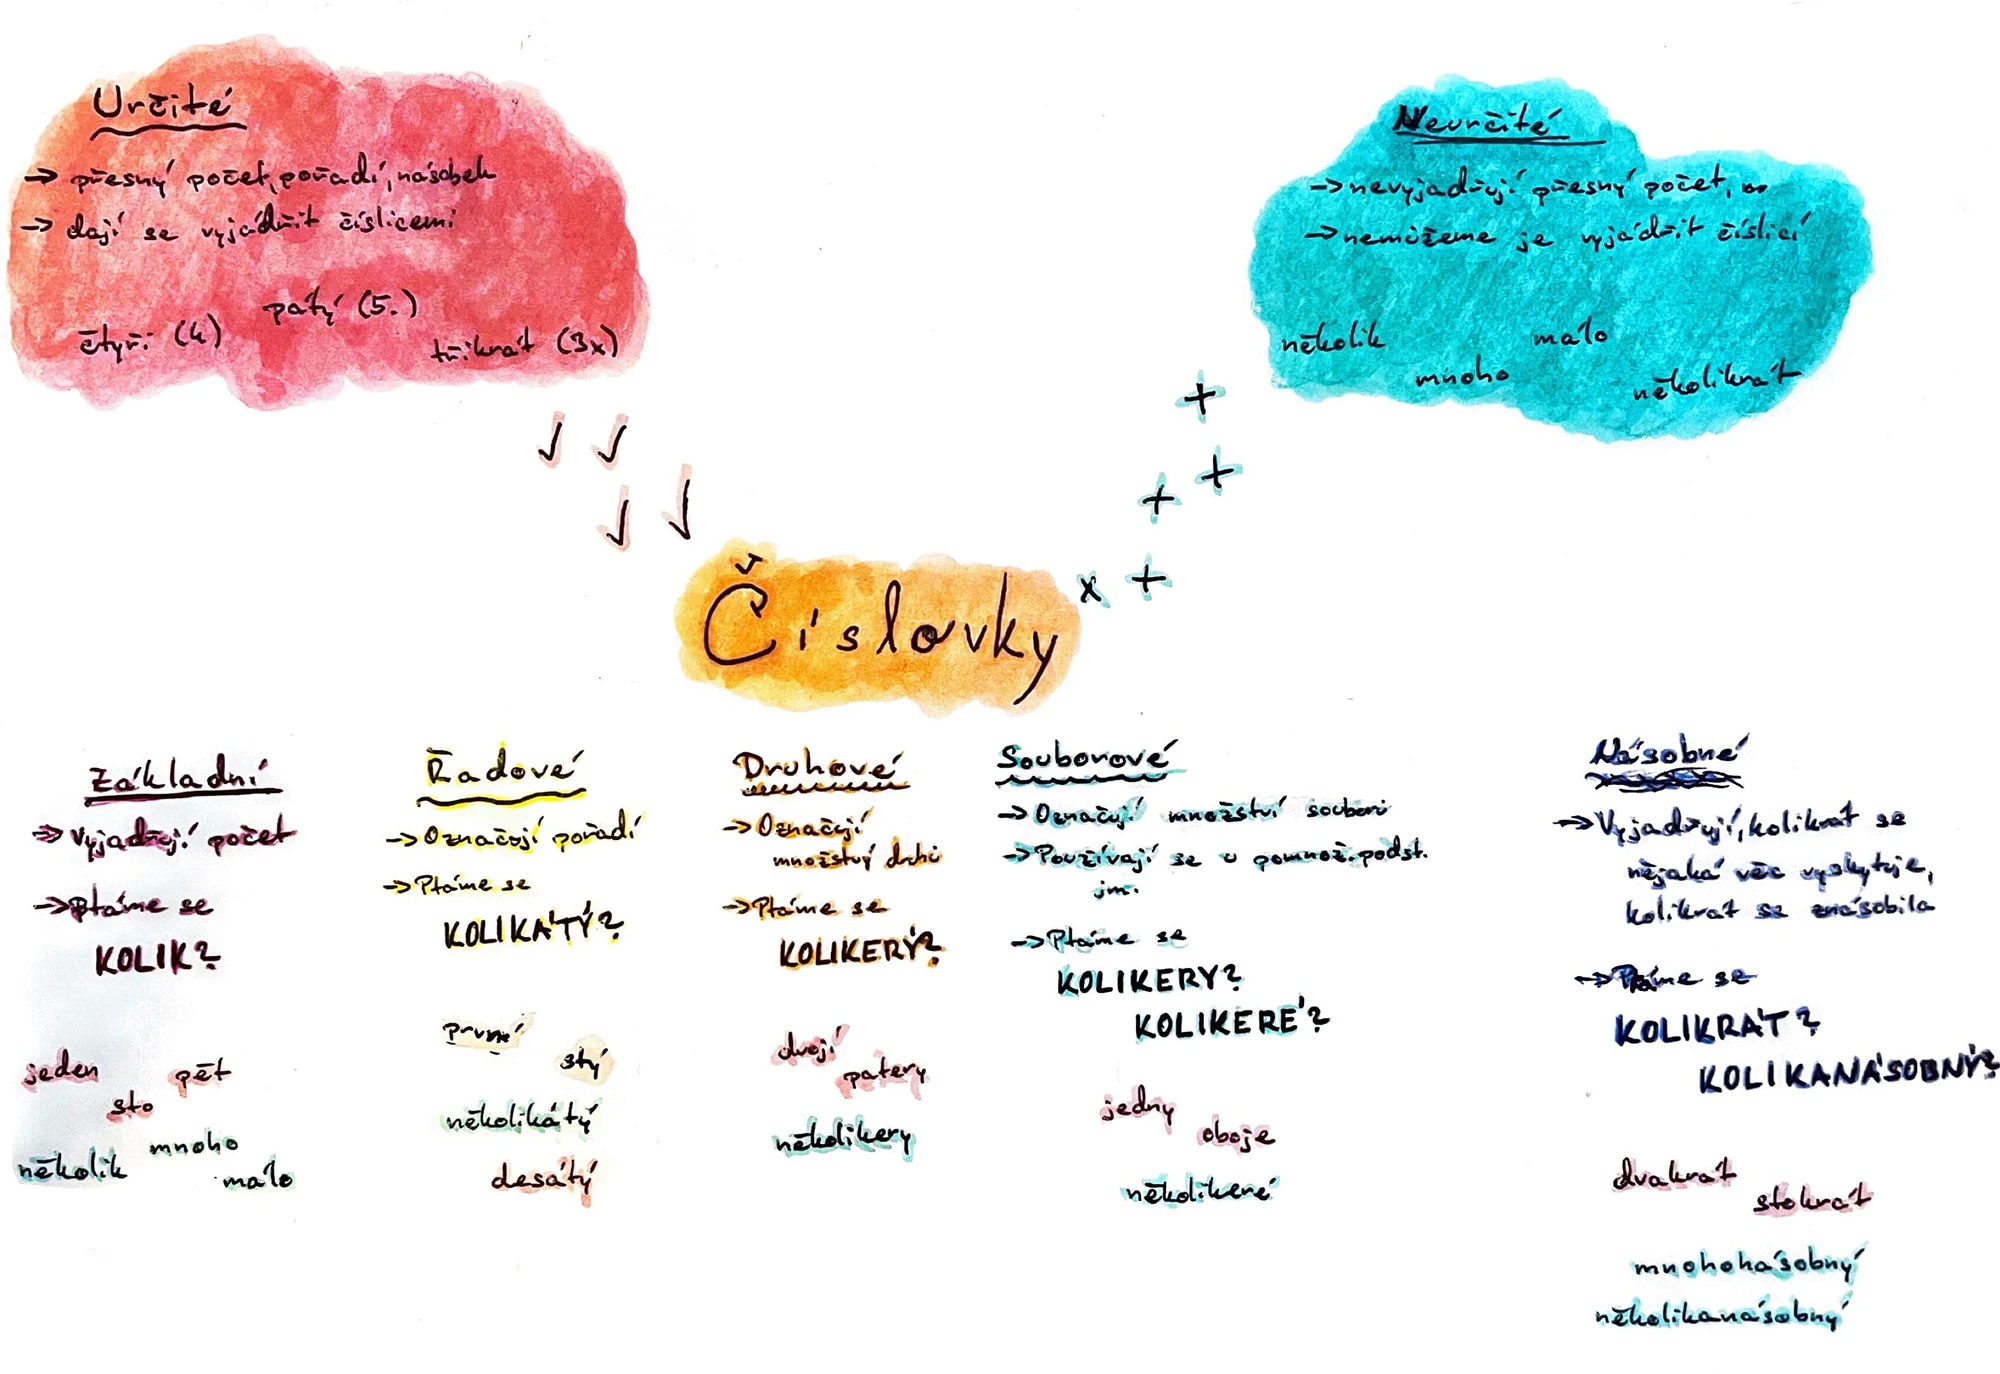 Určité
→ přesný počet, pořadí, násobek
→ dají se vyjádřit číslicemi
čtyři (4)
pátý (5.)
třikrát (3x)
Neurčité
→ nevyjadřují přesný počet,
→ nemůžeme je vyjádřit číslicí
několik
málo
mnoho
několikrát
Číslovky
Základní
→ Vyjadřují počet
→ Ptáme se
KOLIK?
jeden
pět
sto
mnoho
několik
málo
Řadové
→ Označují pořadí
→ Ptáme se
KOLIKÁTÝ?
první
stý
několikátý
desátý
Druhové
→ Označují
množstvý druhů
→ Ptáme se
KOLIKERÝ?
dvojí
patery
několikery
Souborové
→ Označují množství souborů
→ Používají se u pomnož. podst.
jm.
→ Ptáme se
KOLIKERY?
KOLIKERÉ?
jedny
oboje
několikeré
Násobné
→ Vyjadřují, kolikrát se
nějaká věc vyskytuje,
kolikrát se znásobila
→ Ptáme se
KOLIKRÁT?
KOLIKANÁSOBNÝ?
dvakrát
stokrát
mnohonásobný
několikanásobný